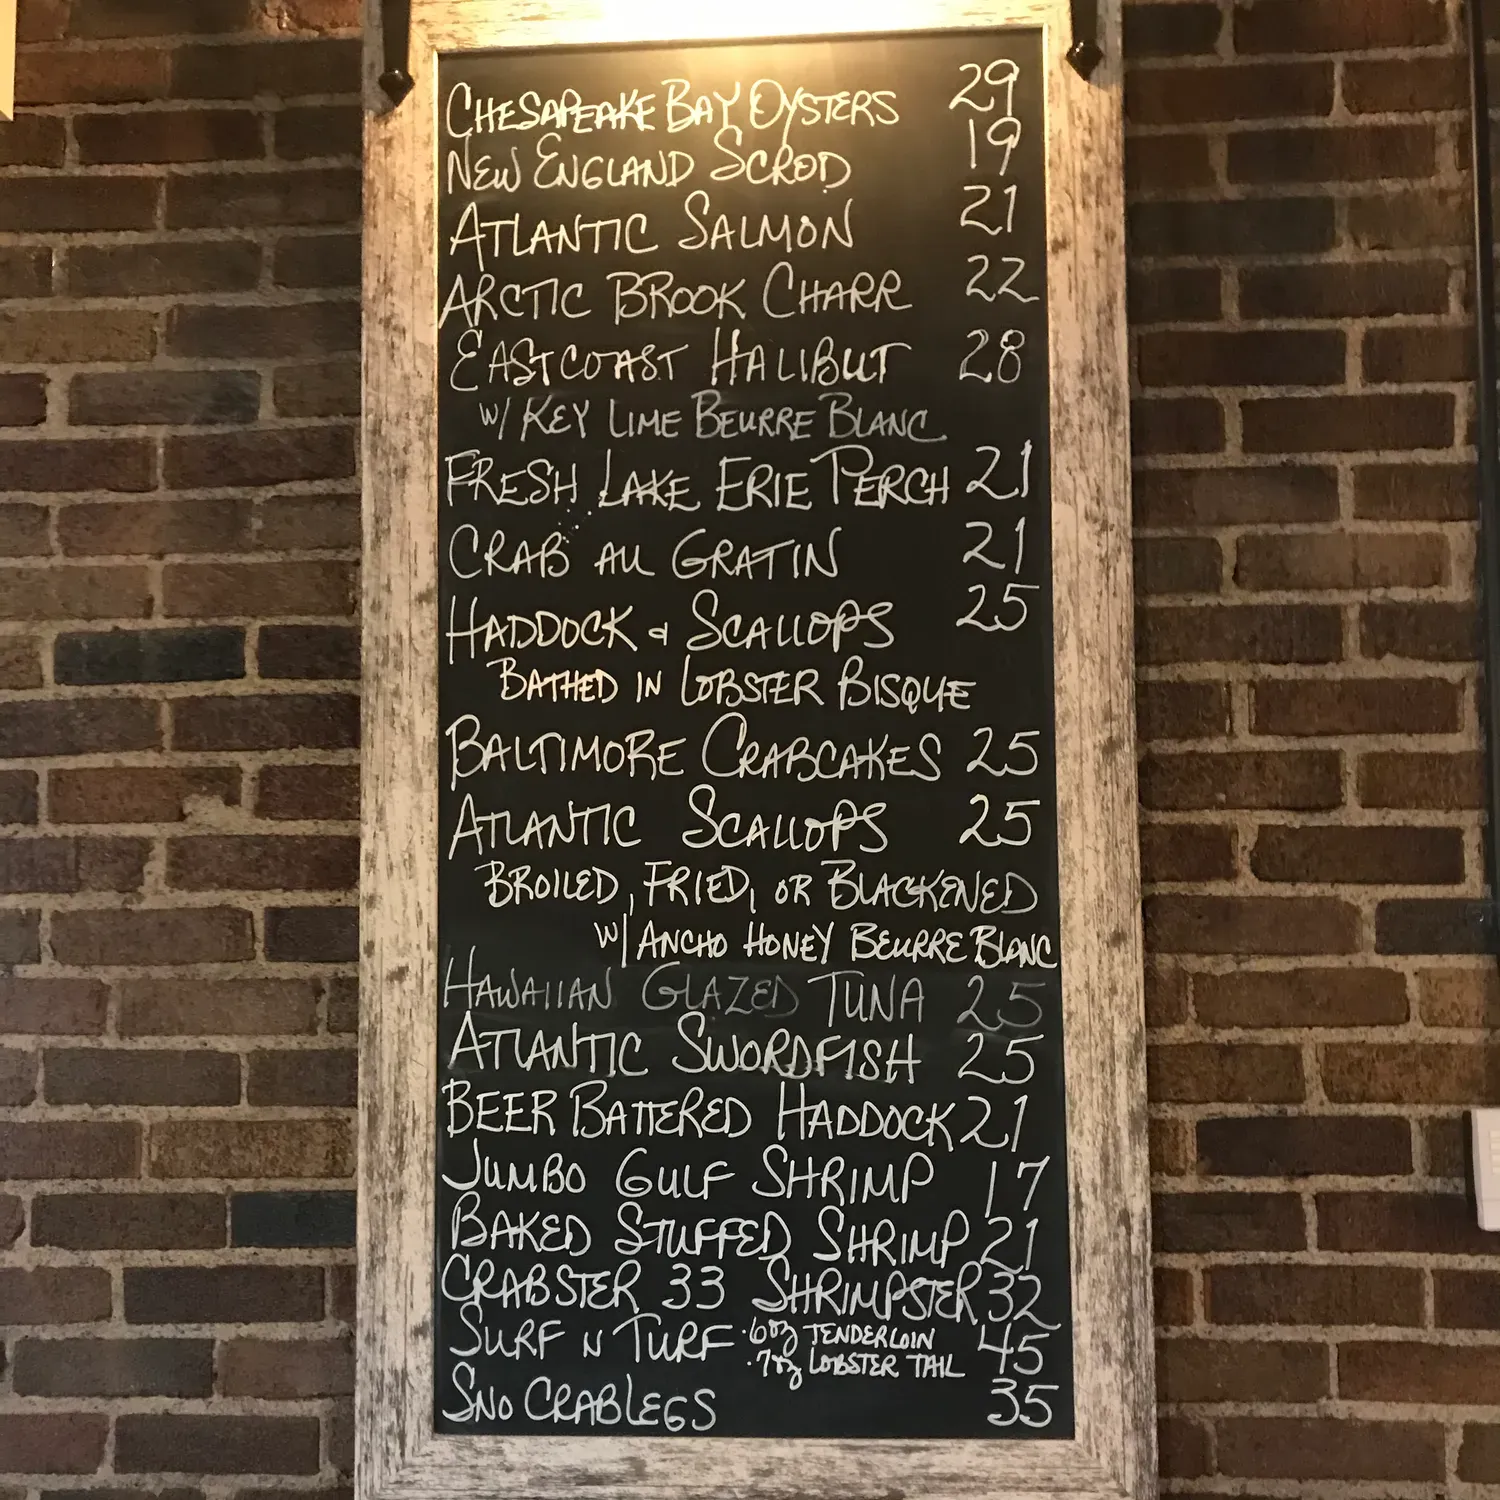 CHESAPEAKE BAY OYSTERS 29
NEW ENGLAND SCROD 19
ATLANTIC SALMON 21
ARCTIC BROOK CHARR 22
EASTCOAST HALIBUT 28
W/ KEY LIME BEURRE BLANC
FRESH LAKE ERIE PERCH 21
CRAB AU GRATIN 21
HADDOCK & SCALLOPS 25
BATHED IN LOBSTER BISQUE
BALTIMORE CRABCAKES 25
ATLANTIC SCALLOPS 25
BROILED, FRIED, OR BLACKENED
W/ ANCHO HONEY BEURRE BLANC
HAWAIIAN GLAZED TUNA 25
ATLANTIC SWORDFISH 25
BEER BATTERED HADDOCK 21
JUMBO GULF SHRIMP 17
BAKED STUFFED SHRIMP 21
CRABSTER 33 SHRIMPSTER 32
SURF N TURF • 6oz TENDERLOIN 45
• 7oz LOBSTER TAIL
SNO CRABLEGS 35